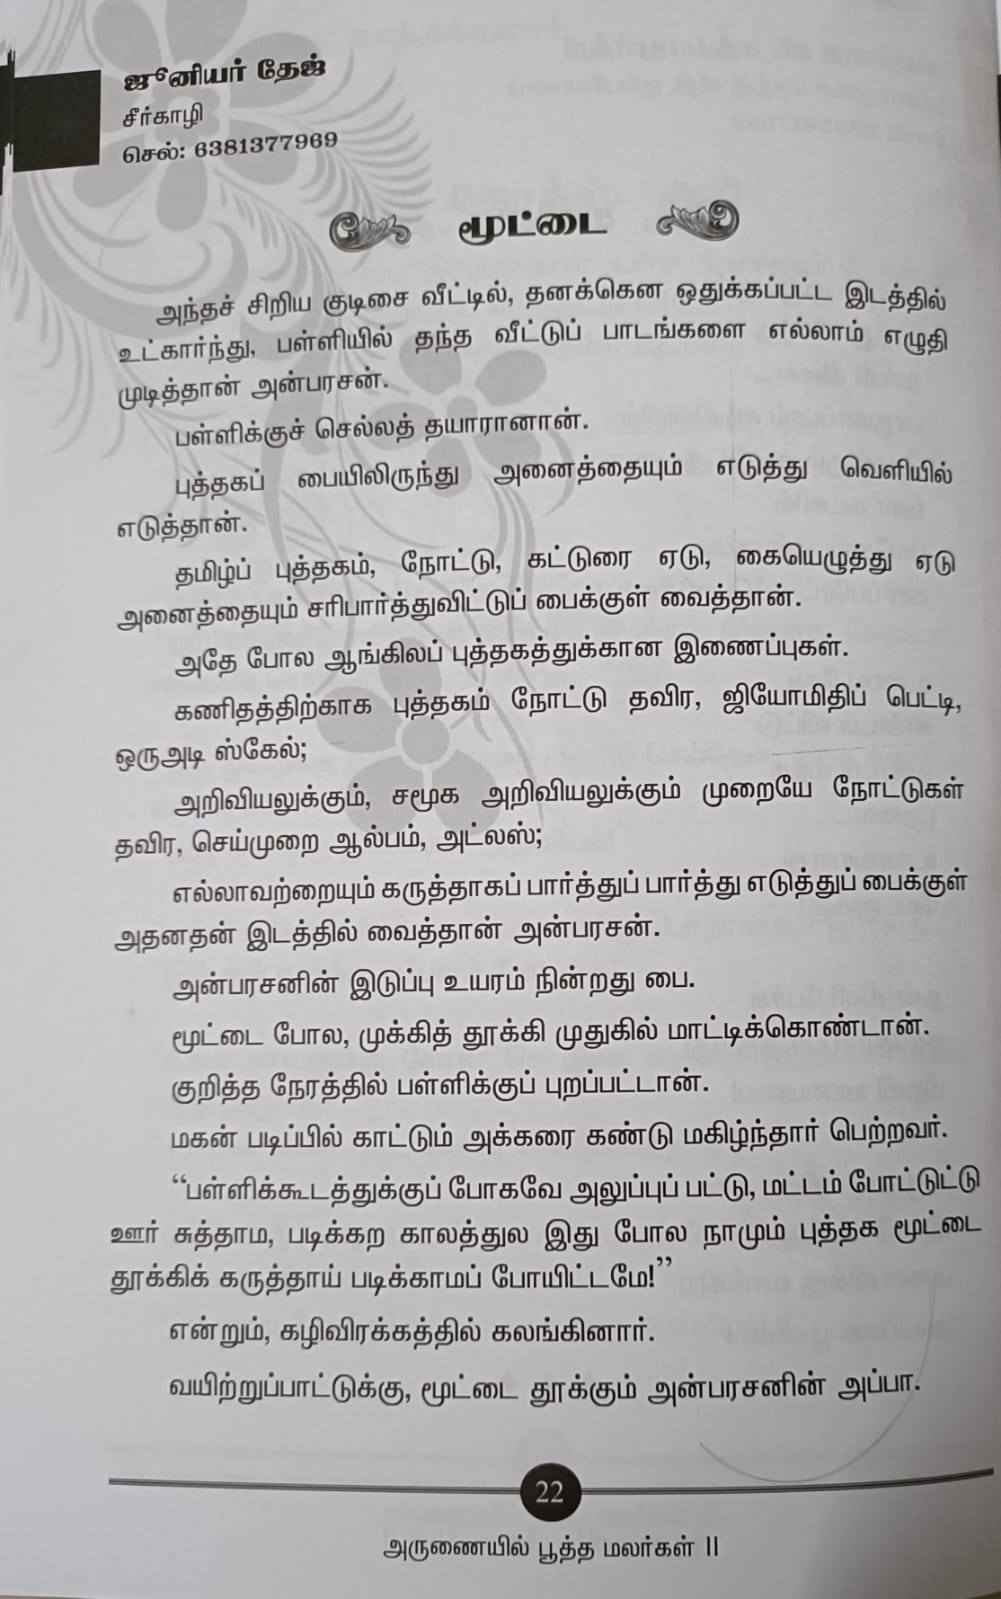 ஜூனியர் தேஜ்
சீர்காழி
செல்: 6381377969
மூட்டை
அந்தச் சிறிய குடிசை வீட்டில், தனக்கென ஒதுக்கப்பட்ட இடத்தில்
உட்கார்ந்து, பள்ளியில் தந்த வீட்டுப் பாடங்களை எல்லாம் எழுதி
முடித்தான் அன்பரசன்.
பள்ளிக்குச் செல்லத் தயாரானான்.
புத்தகப் பையிலிருந்து அனைத்தையும் எடுத்து வெளியில்
எடுத்தான்.
தமிழ்ப் புத்தகம், நோட்டு, கட்டுரை ஏடு, கையெழுத்து ஏடு
அனைத்தையும் சரிபார்த்துவிட்டுப் பைக்குள் வைத்தான்.
அதே போல ஆங்கிலப் புத்தகத்துக்கான இணைப்புகள்.
கணிதத்திற்காக புத்தகம் நோட்டு தவிர, ஜியோமிதிப் பெட்டி,
ஒருஅடி ஸ்கேல்;
அறிவியலுக்கும், சமூக அறிவியலுக்கும் முறையே நோட்டுகள்
தவிர, செய்முறை ஆல்பம், அட்லஸ்;
எல்லாவற்றையும் கருத்தாகப் பார்த்துப் பார்த்து எடுத்துப் பைக்குள்
அதனதன் இடத்தில் வைத்தான் அன்பரசன்.
அன்பரசனின் இடுப்பு உயரம் நின்றது பை.
மூட்டை போல, முக்கித் தூக்கி முதுகில் மாட்டிக்கொண்டான்.
குறித்த நேரத்தில் பள்ளிக்குப் புறப்பட்டான்.
மகன் படிப்பில் காட்டும் அக்கரை கண்டு மகிழ்ந்தார் பெற்றவர்.
“பள்ளிக்கூடத்துக்குப் போகவே அலுப்புப் பட்டு, மட்டம் போட்டுட்டு
ஊர் சுத்தாம, படிக்கற காலத்துல இது போல நாமும் புத்தக மூட்டை
தூக்கிக் கருத்தாய் படிக்காமப் போயிட்டமே!”
என்றும், கழிவிரக்கத்தில் கலங்கினார்.
வயிற்றுப்பாட்டுக்கு, மூட்டை தூக்கும் அன்பரசனின் அப்பா.
22
அருணையில் பூத்த மலர்கள் II